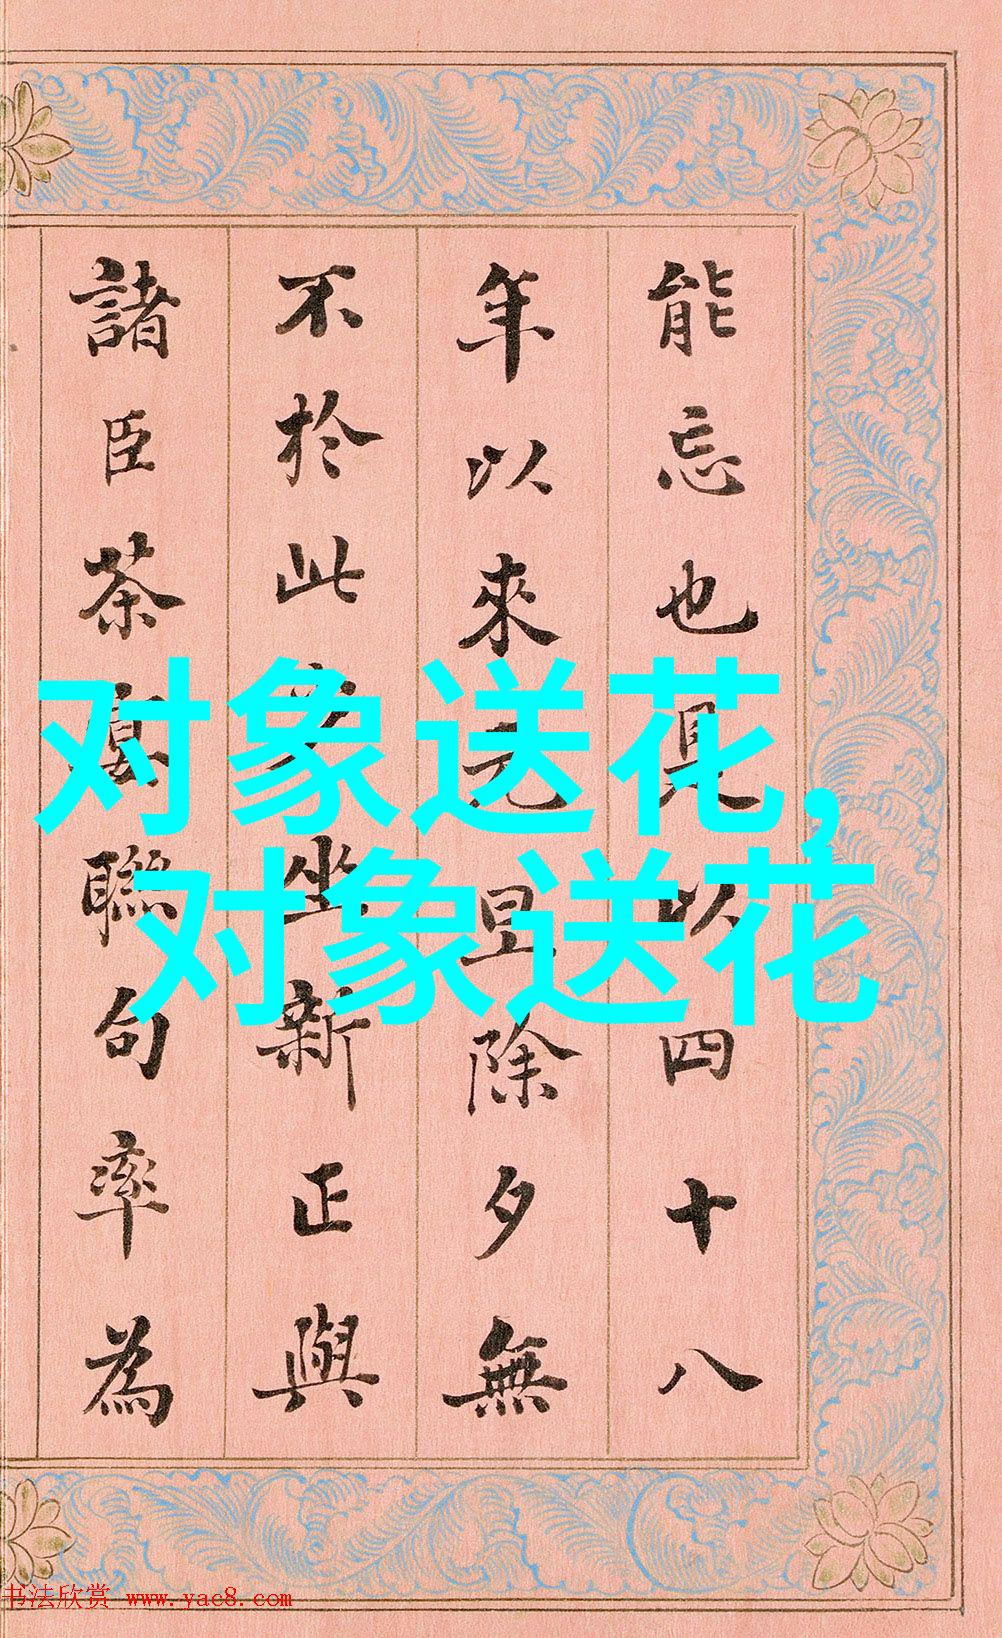 能忘也是以四十八
年以來元旦除夕無
不於此少坐新正與
諸臣茶宴聯句率為
对象送花,
对象送花
书法欣赏 www.yac8.com